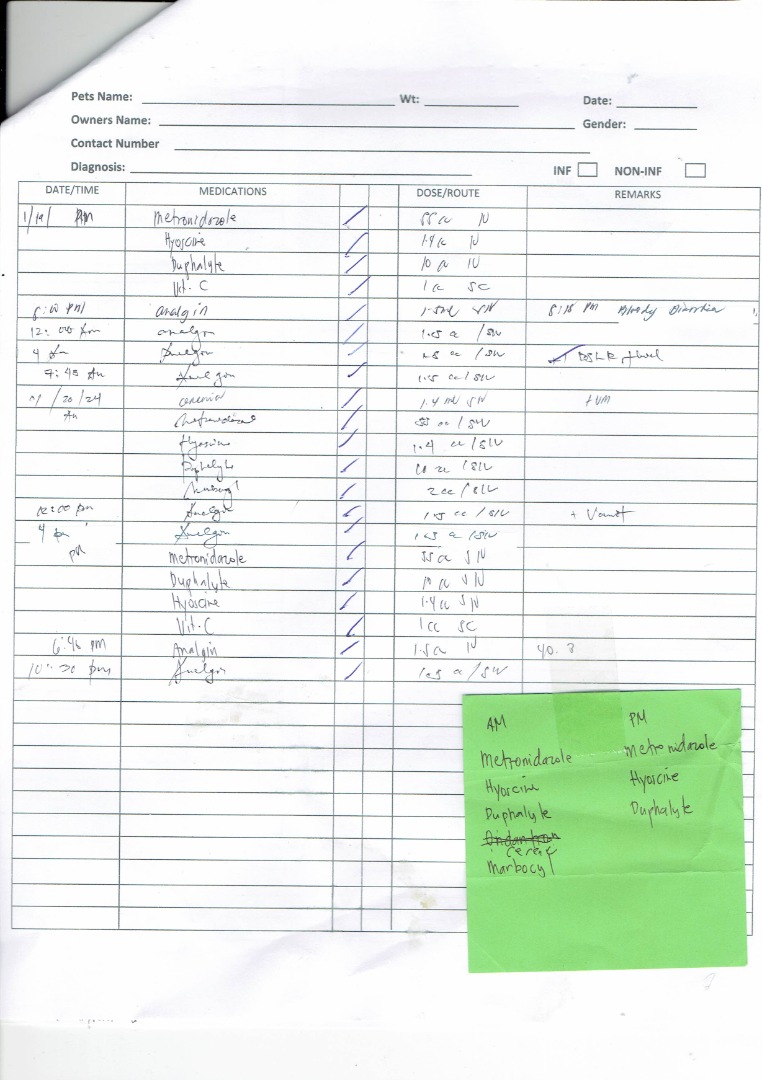 Pets Name: Wt: Date:
Owners Name: Gender:
Contact Number
Diagnosis: INF NON-INF
DATE/TIME MEDICATIONS DOSE/ROUTE REMARKS
1/19/ AM Metronidazole 55 cc IV
Hyoscine 1.4 cc IV
Duphalyte 10 cc IV
Vit. C 1 cc SC
8:10 PM analgin 1.5ml SIV 8:15 PM Bloody Diarrhea
12:00 Am analgin 1.5 cc /SIV
4 Am Analgin 1.5 cc /SIV
7:45 Am Analgin 1.5 cc/SIV
/20/24 cerenia 1.4 ml SIV
Am Metronidazole 55 cc /SIV
Hyoscine 1.4 cc /SIV
Duphalyte 10 cc /SIV
2 cc /SIV
12:00 pm Analgin 1.5 cc /SIV + Vomit
4 pm Analgin 1.5 cc /SIV
PM Metronidazole 55 cc SIV
Duphalyte 10 cc SIV
Hyoscine 1.4 cc SIV
Vit. C 1 cc SC
6:46 PM Analgin 1.5 cc IV 40.3
10:30 pm Analgin 1.5 cc /SIV
AM PM
Metronidazole Metronidazole
Hyoscine Hyoscine
Duphalyte Duphalyte
Marbocyl